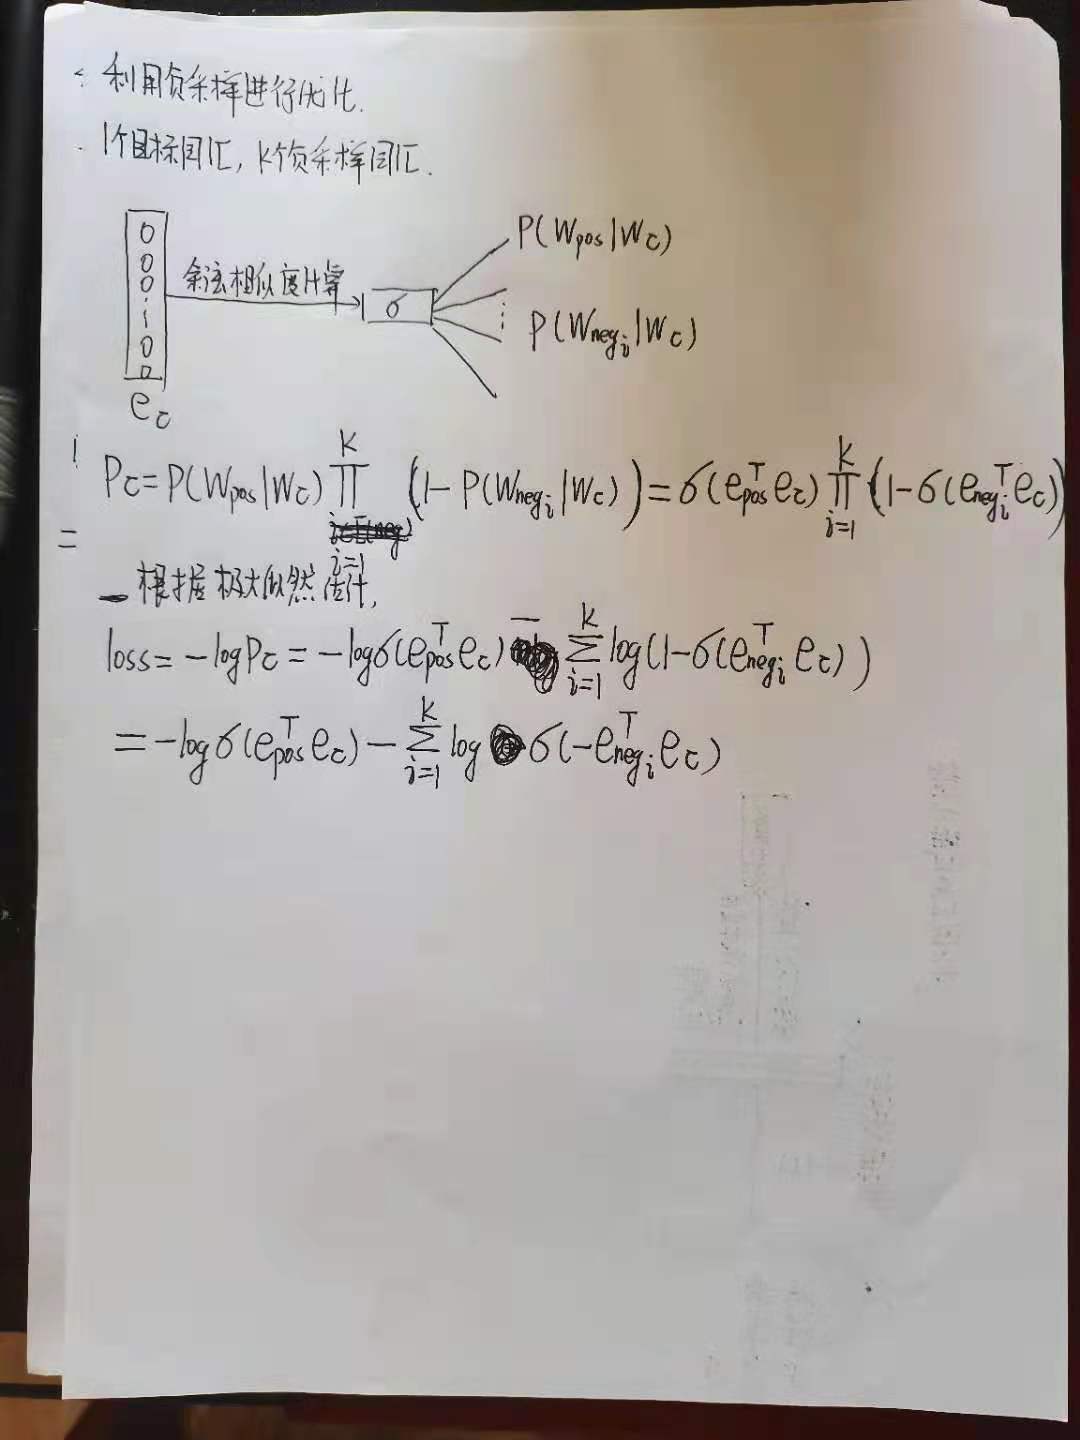 利用负采样进行优化.
1个目标词汇, K个负采样词汇.
P(W_pos|W_c)
余弦相似度计算
σ
P(W_neg_i|W_c)
e_c
P_c = P(W_pos|W_c) ∏_{i=1}^{K} (1-P(W_neg_i|W_c)) = σ(e_pos^T e_c) ∏_{i=1}^{K} (1-σ(e_neg_i^T e_c)
=
根据极大似然估计,
loss = -logP_c = -logσ(e_pos^T e_c) - ∑_{i=1}^{K} log(1-σ(e_neg_i^T e_c))
= -logσ(e_pos^T e_c) - ∑_{i=1}^{K} log σ(-e_neg_i^T e_c)